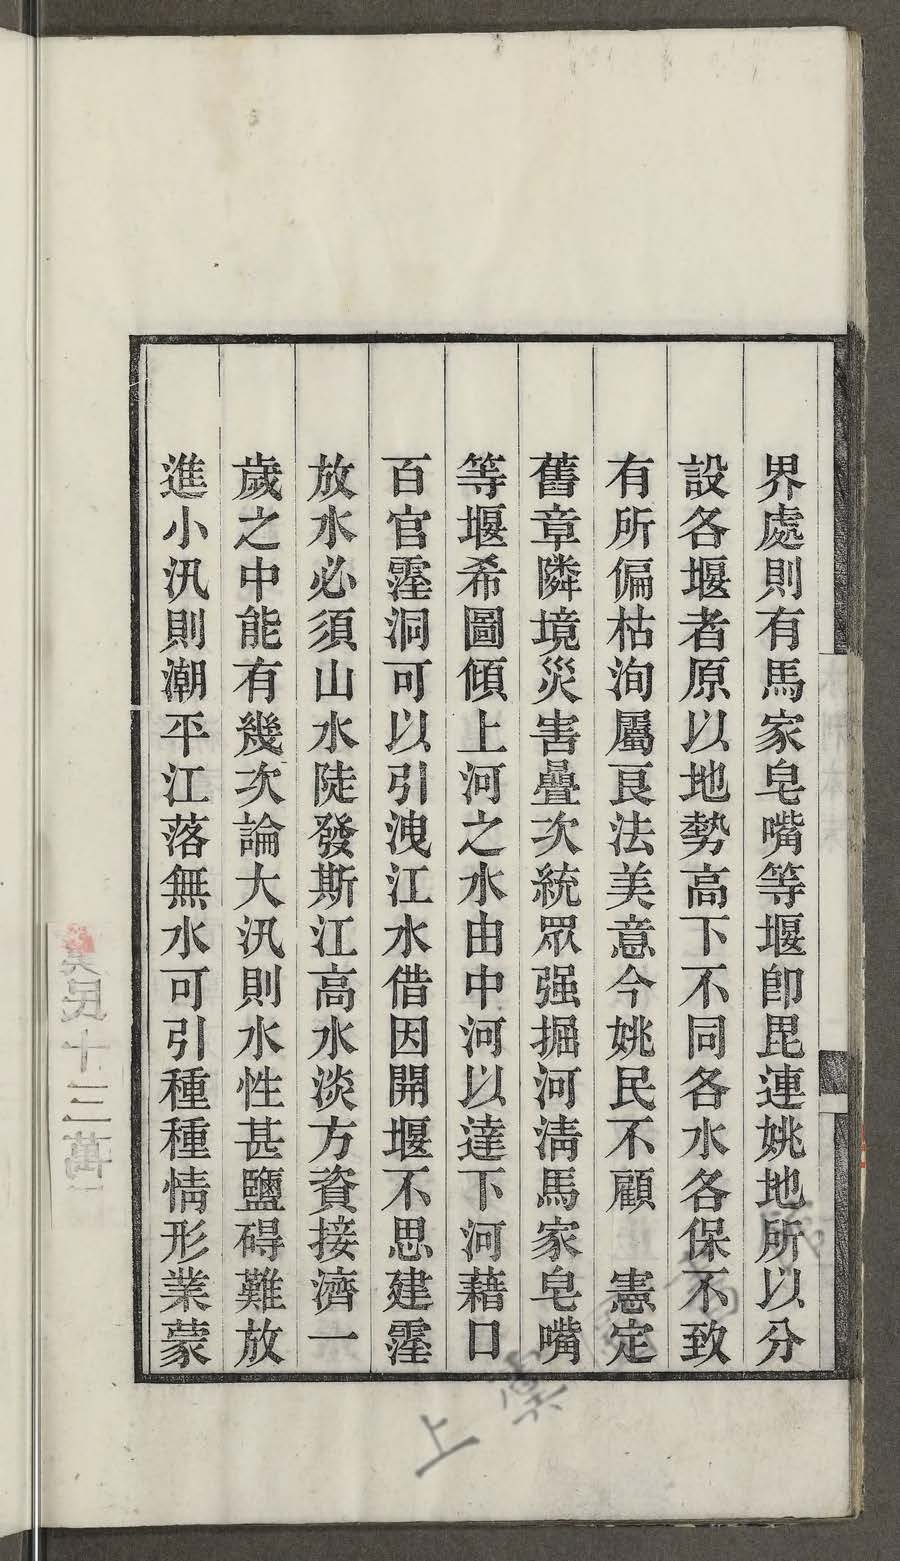 界處則有馬家皂嘴等堰卽毘連姚地所以分
設各堰者原以地勢高下不同各水各保不致
有所偏枯洵屬良法美意今姚民不顧　憲定
舊章隣境災害疊次統眾强掘河淸馬家皂嘴
等堰希圖傾上河之水由中河以達下河藉口
百官霪洞可以引洩江水借因開堰不思建霪
放水必須山水陡發斯江高水淡方資接濟一
歲之中能有幾次論大汛則水性甚鹽碍難放
進小汛則潮平江落無水可引種種情形業蒙